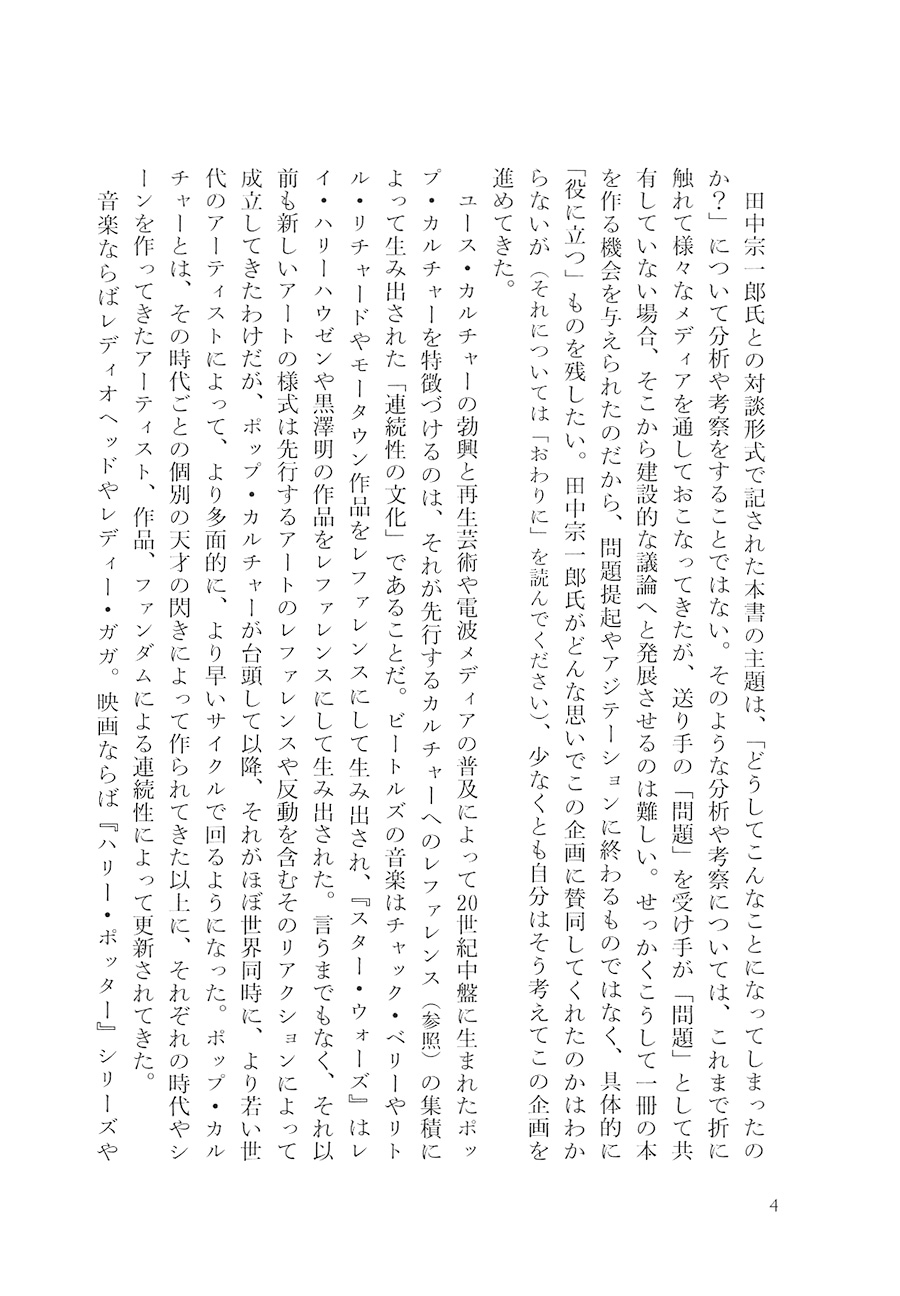 田中宗一郎氏との対談形式で記された本書の主題は、「どうしてこんなことになってしまったの
か？」について分析や考察をすることではない。そのような分析や考察については、これまで折に
触れて様々なメディアを通しておこなってきたが、送り手の「問題」を受け手が「問題」として共
有していない場合、そこから建設的な議論へと発展させるのは難しい。せっかくこうして一冊の本
を作る機会を与えられたのだから、問題提起やアジテーションに終わるものではなく、具体的に
「役に立つ」ものを残したい。田中宗一郎氏がどんな思いでこの企画に賛同してくれたのかはわか
らないが（それについては「おわりに」を読んでください）、少なくとも自分はそう考えてこの企画を
進めてきた。
ユース・カルチャーの勃興と再生芸術や電波メディアの普及によって20世紀中盤に生まれたポッ
プ・カルチャーを特徴づけるのは、それが先行するカルチャーへのレファレンス（参照）の集積に
よって生み出された「連続性の文化」であることだ。ビートルズの音楽はチャック・ベリーやリト
ル・リチャードやモータウン作品をレファレンスにして生み出され、『スター・ウォーズ』はレ
イ・ハリーハウゼンや黒澤明の作品をレファレンスにして生み出された。言うまでもなく、それ以
前も新しいアートの様式は先行するアートのレファレンスや反動を含むそのリアクションによって
成立してきたわけだが、ポップ・カルチャーが台頭して以降、それがほぼ世界同時に、より若い世
代のアーティストによって、より多面的に、より早いサイクルで回るようになった。ポップ・カル
チャーとは、その時代ごとの個別の天才の閃きによって作られてきた以上に、それぞれの時代やシ
ーンを作ってきたアーティスト、作品、ファンダムによる連続性によって更新されてきた。
音楽ならばレディオヘッドやレディー・ガガ。映画ならば『ハリー・ポッター』シリーズや
4